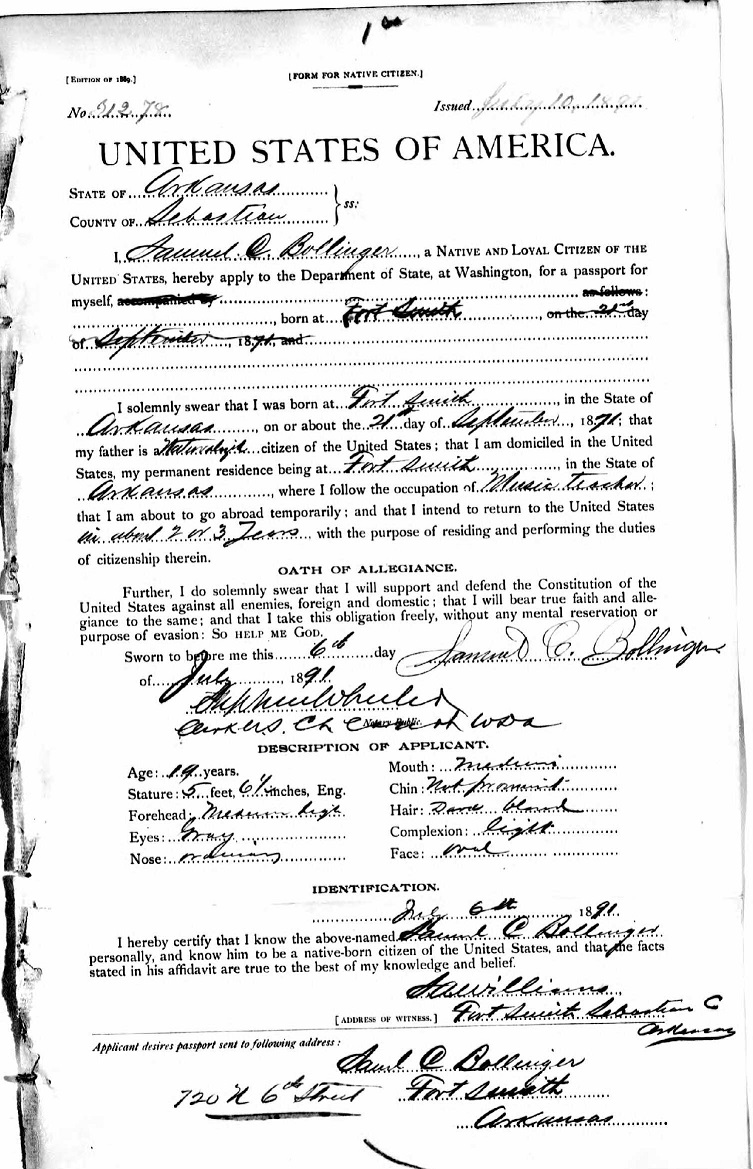 [EDITION OF 1889.]
[FORM FOR NATIVE CITIZEN.]
No. 31278
Issued July 10, 1891
UNITED STATES OF AMERICA.
STATE OF Arkansas
COUNTY OF Sebastian
ss:
I, Samuel C. Bollinger, a NATIVE AND LOYAL CITIZEN OF THE
UNITED STATES, hereby apply to the Department of State, at Washington, for a passport for
myself, accompanied by as follows:
, born at Fort Smith, on the 21st day
of September, 1871, and
I solemnly swear that I was born at Fort Smith, in the State of
Arkansas, on or about the 21st day of September, 1871; that
my father is citizen of the United States; that I am domiciled in the United
States, my permanent residence being at Fort Smith, in the State of
Arkansas, where I follow the occupation of Music teacher;
that I am about to go abroad temporarily; and that I intend to return to the United States
in about 2 or 3 Years with the purpose of residing and performing the duties
of citizenship therein.
OATH OF ALLEGIANCE.
Further, I do solemnly swear that I will support and defend the Constitution of the
United States against all enemies, foreign and domestic; that I will bear true faith and alle-
giance to the same; and that I take this obligation freely, without any mental reservation or
purpose of evasion: SO HELP ME GOD.
Sworn to before me this 6th day
Samuel C. Bollinger
of July, 1891.
Stephen Wheeler
Clerk U.S. Ct WDA
Notary Public.
DESCRIPTION OF APPLICANT.
Age: 19 years.
Mouth: Medium
Stature: 5 feet, 6½ inches, Eng.
Chin: Not prominent
Forehead: Medium high
Hair: Dark blond
Eyes: Gray
Complexion: light
Nose: ordinary
Face: oval
IDENTIFICATION.
July 6th 1891.
I hereby certify that I know the above-named Samuel C Bollinger
personally, and know him to be a native-born citizen of the United States, and that the facts
stated in his affidavit are true to the best of my knowledge and belief.
Williams
[ADDRESS OF WITNESS.] Fort Smith Sebastian C
Arkansas
Applicant desires passport sent to following address:
Saml C Bollinger
720 N 6th Street
Fort Smith
Arkansas